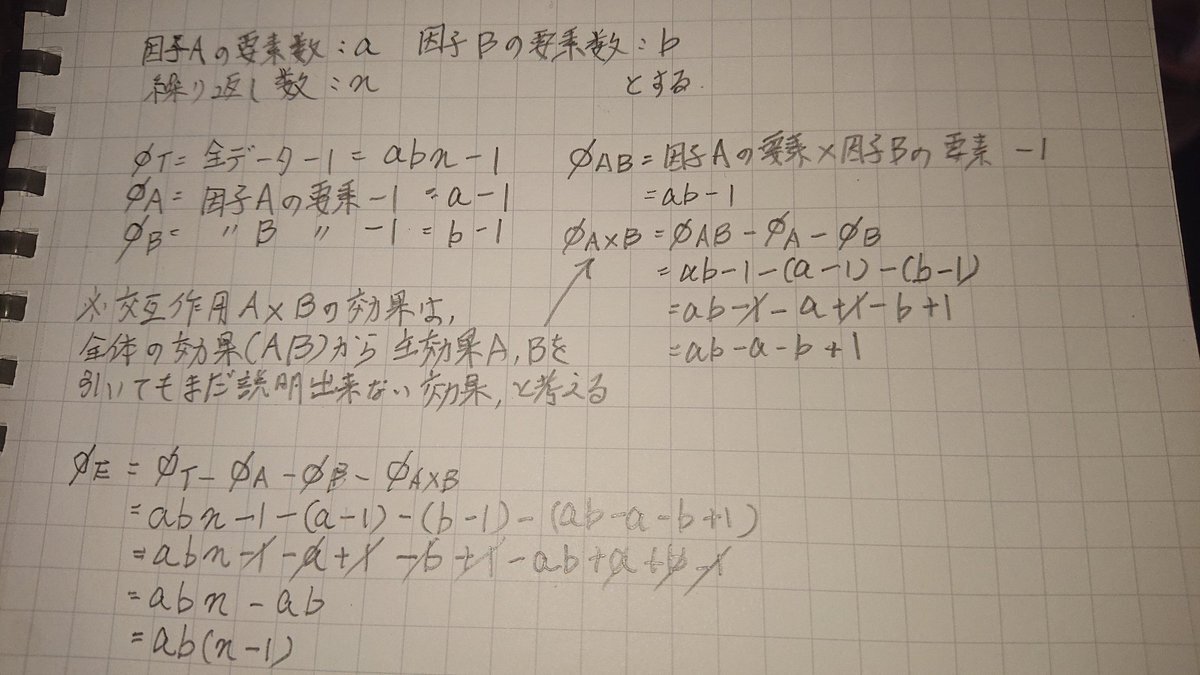 因子Aの要素数:a 因子Bの要素数:b
繰り返し数:n とする.
φT=全データ-1=abn-1
φA=因子Aの要素-1=a-1
φB=〃B〃-1=b-1
φAB=因子Aの要素×因子Bの要素-1
=ab-1
φA×B=φAB-φA-φB
=ab-1-(a-1)-(b-1)
=ab-1-a+1-b+1
=ab-a-b+1
※交互作用A×Bの効果は,
全体の効果(AB)から主効果A,Bを
引いてもまだ説明出来ない効果,と考える
φE=φT-φA-φB-φA×B
=abn-1-(a-1)-(b-1)-(ab-a-b+1)
=abn-1-a+1-b+1-ab+a+b-1
=abn-ab
=ab(n-1)